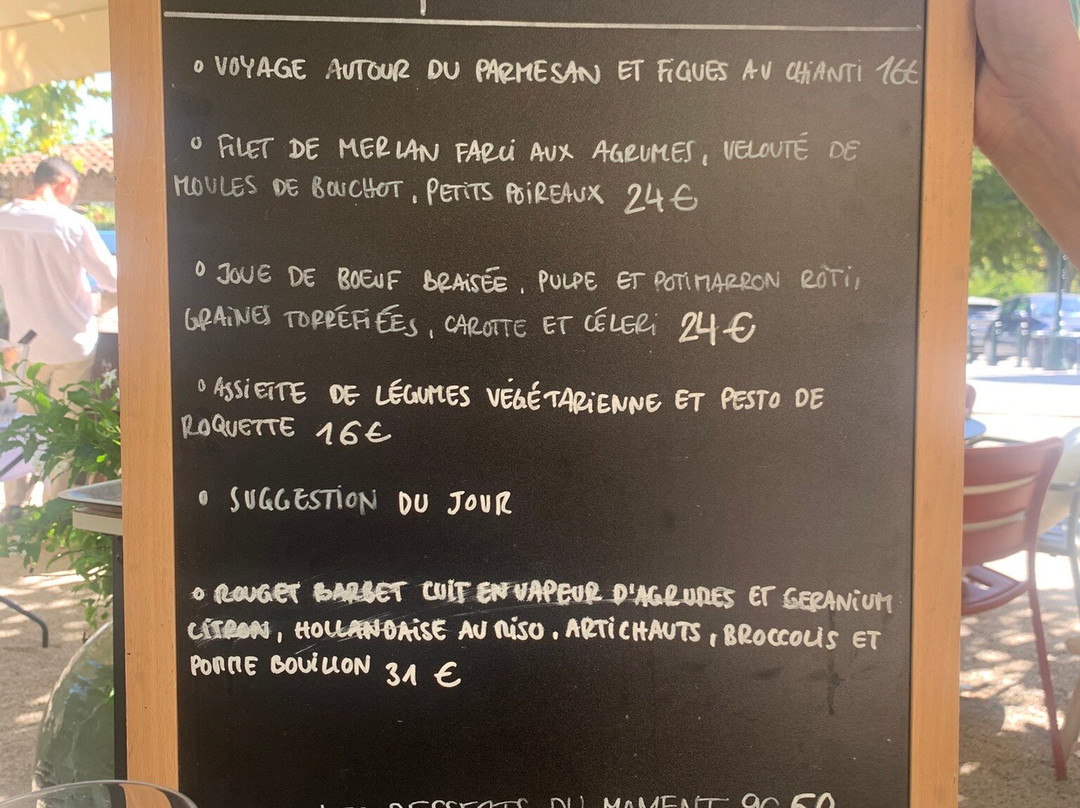 ° VOYAGE AUTOUR DU PARMESAN ET FIGUES AU CHIANTI 16€
° FILET DE MERLAN FARCI AUX AGRUMES, VELOUTÉ DE
MOULES DE BOUCHOT, PETITS POIREAUX 24€
° JOUE DE BOEUF BRAISÉE, PULPE ET POTIMARRON RÔTI,
GRAINES TORRÉFIÉES, CAROTTE ET CÉLERI 24€
° ASSIETTE DE LÉGUMES VÉGÉTARIENNE ET PESTO DE
ROQUETTE 16€
° SUGGESTION DU JOUR
° ROUGET BARBET CUIT EN VAPEUR D'AGRUMES ET GERANIUM
CITRON, HOLLANDAISE AU MISO, ARTICHAUTS, BROCCOLIS ET
POMME BOUILLON 31 €
DESSERTS DU MOMENT 9€50